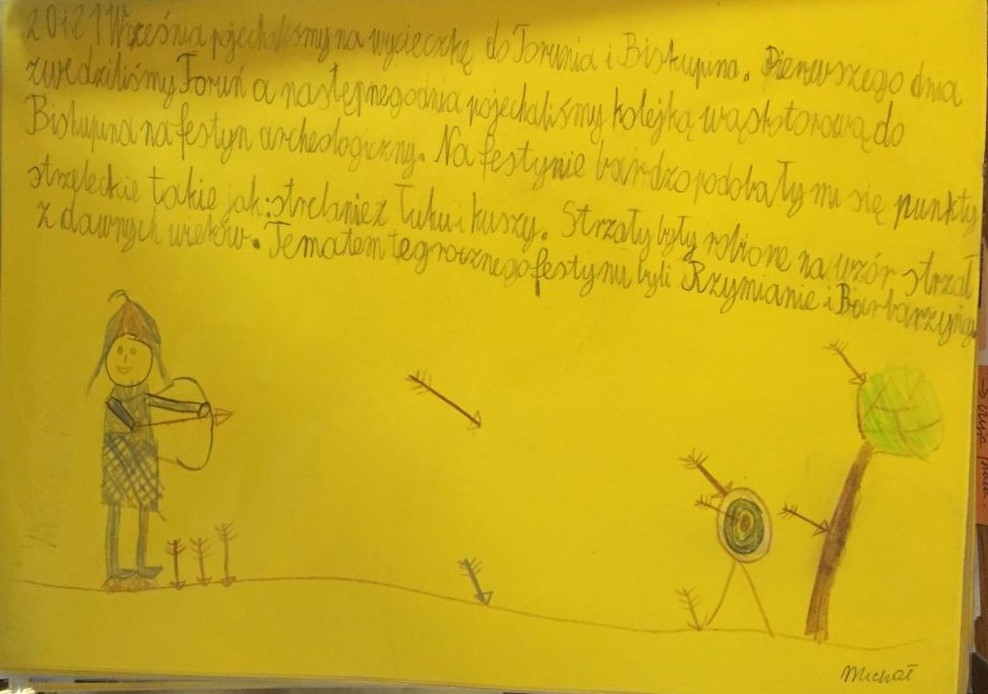 20 i 21 Września pojechalismy na wycieczkę do Torunia i Biskupina. Pierwszego dnia
zwiedziliśmy Toruń a następnego dnia pojechaliśmy kolejką wąskotorową do
Biskupina na festyn archeologiczny. Na festynie bardzo podobały mi się punkty
strzeleckie takie jak: strelanie z łuku i kuszy. Strzały były robione na wzór strzał
z dawnych wieków. Tematem tegrocznego festynu byli Rzymianie i Barbarzyńcy.
Michał